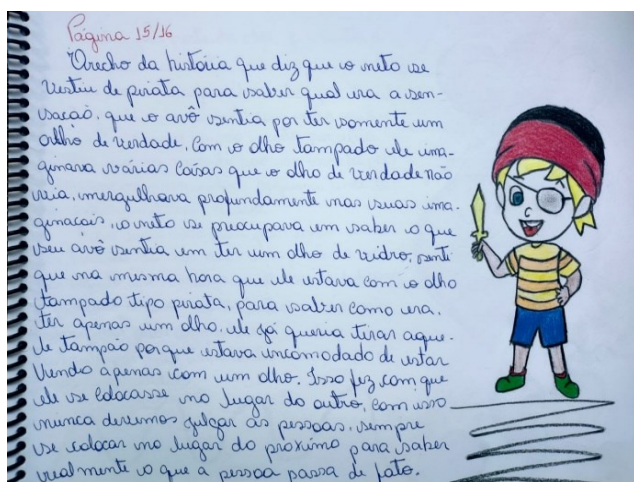 Página 15/16
Trecho da história que diz que o neto se
vestiu de pirata para saber qual era a sen-
sação que o avô sentia por ter somente um
olho de verdade. Com o olho tampado ele ima-
ginava várias coisas que o olho de verdade não
via, mergulhava profundamente nas suas ima-
ginacais, o neto se preocupava em saber o que
seu avô sentia em ter um olho de vidro, senti
que na mesma hora que ele estava com o olho
tampado tipo pirata, para saber como era,
ter apenas um olho, ele já queria tirar aque-
le tampão porque estava incomodado de estar
vendo apenas com um olho. Isso fez com que
ele se colocasse no lugar do outro, com isso
nunca devemos julgar as pessoas, sempre
se colocar no lugar do próximo para saber
realmente o que a pessoa passa de fato.